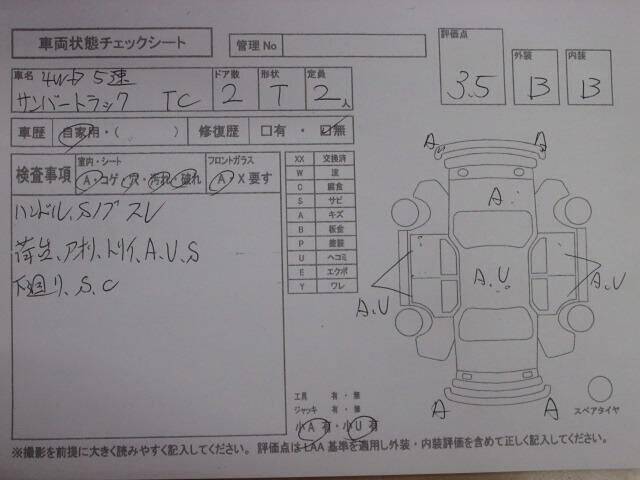 車両状態チェックシート
管理No
評価点
3.5
外装
B
内装
B
車名 4WD 5速
サンバートラック TC
ドア数
2
形状
T
定員
2人
車歴 自家用・( ) 修復歴 口有・口無
検査事項
室内・シート
A・コゲ・穴・汚れ・破れ
フロントガラス
A X要す
ハンドル、Sノブ スレ
荷台、アオリ、トリイ、A、U、S
下廻り、S、C
XX 交換済
W 波
C 腐食
S サビ
A キズ
B 板金
P 塗装
U ヘコミ
E エクボ
Y ワレ
A
A
A
A.U
A.U
A.U
A
A
スペアタイヤ
工具 有・無
ジャッキ 有・無
小A有・小U有
※撮影を前提に大きく読みやすく記入してください。評価点はLAA基準を適用し外装・内装評価を含めて正しく記入してください。